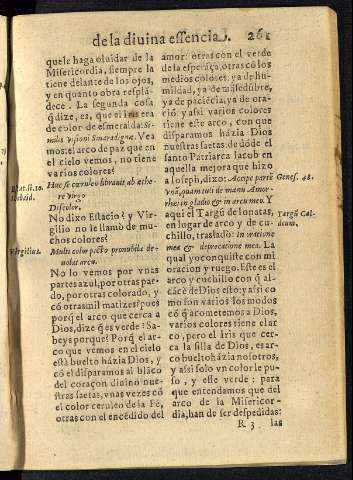 de la diuina essencia. 261
quele haga oluidar de la
Misericordia, siempre la
tiene delante de los ojos,
y en quanto obra resplā-
dece. La segunda cosa
q̃ dize, es, que el Iris era
de color de esmeralda: Si-
milis visioni Smaragdinæ. Vea
mos: el arco de paz que en
el cielo vemos, no tiene
varios colores?
Stat. li. 10.
Thebaid.
Huc se cæruleo librauit ab æthe-
re Virgo
Discolor.
No dixo Estacio? y Vir-
gilio no le llamò de mu-
chos colores?
Virgilius.
Multi color picto pronubila de-
uolat arcu.
No lo vemos por vnas
partes azul, por otras par-
do, por otras colorado, y
cō otras mil matizes? pues
porq̃ el arco que cerca a
Dios, dize q̃ es verde? Sa-
beys porque? Porq̃ el ar-
co que vemos en el cielo
està buelto hàzia Dios, y
cō el disparamos al blāco
del coraçon diuino nue-
stras saetas, vnas vezes cō
el color ceruleo de la Fè,
otras con el encēdido del
amor: otras con el verde
de la esperāça, otras cō los
medios colores: ya de hu-
mildad, ya de māsedūbre,
ya de paciēcia, ya de ora-
ciō: y assi varios colores
tiene este arco, con que
disparamos hàzia Dios
nuestras saetas: de dōde el
santo Patriarca Iacob en
aquella mejora que hizo
a Ioseph, dixo: Accipe partē
Genes. 48.
vnā, quam tuli de manu Amor-
rhæi in gladio & in arcu meo. Y
aqui el Targū de Ionatas,
Targū Cal-
deum.
en lugar de arco y de cu-
chillo, traslado: In oratione
mea & deprecatione mea. La
qual yo conquiste con mi
oracion y ruego. Este es el
arco y cuchillo con q̃ al-
cācè de Dios ello: y assi co
mo son varios los modos
cō q̃ acometemos a Dios,
varios colores tiene el ar
co, pero el Iris que cer-
ca la silla de Dios, es ar-
co buelto hàzia nosotros,
y assi solo vn color le pu-
so, y esse verde: para
que entendamos que del
arco de la Misericor-
dia, han de ser despedidas:
R 3 las